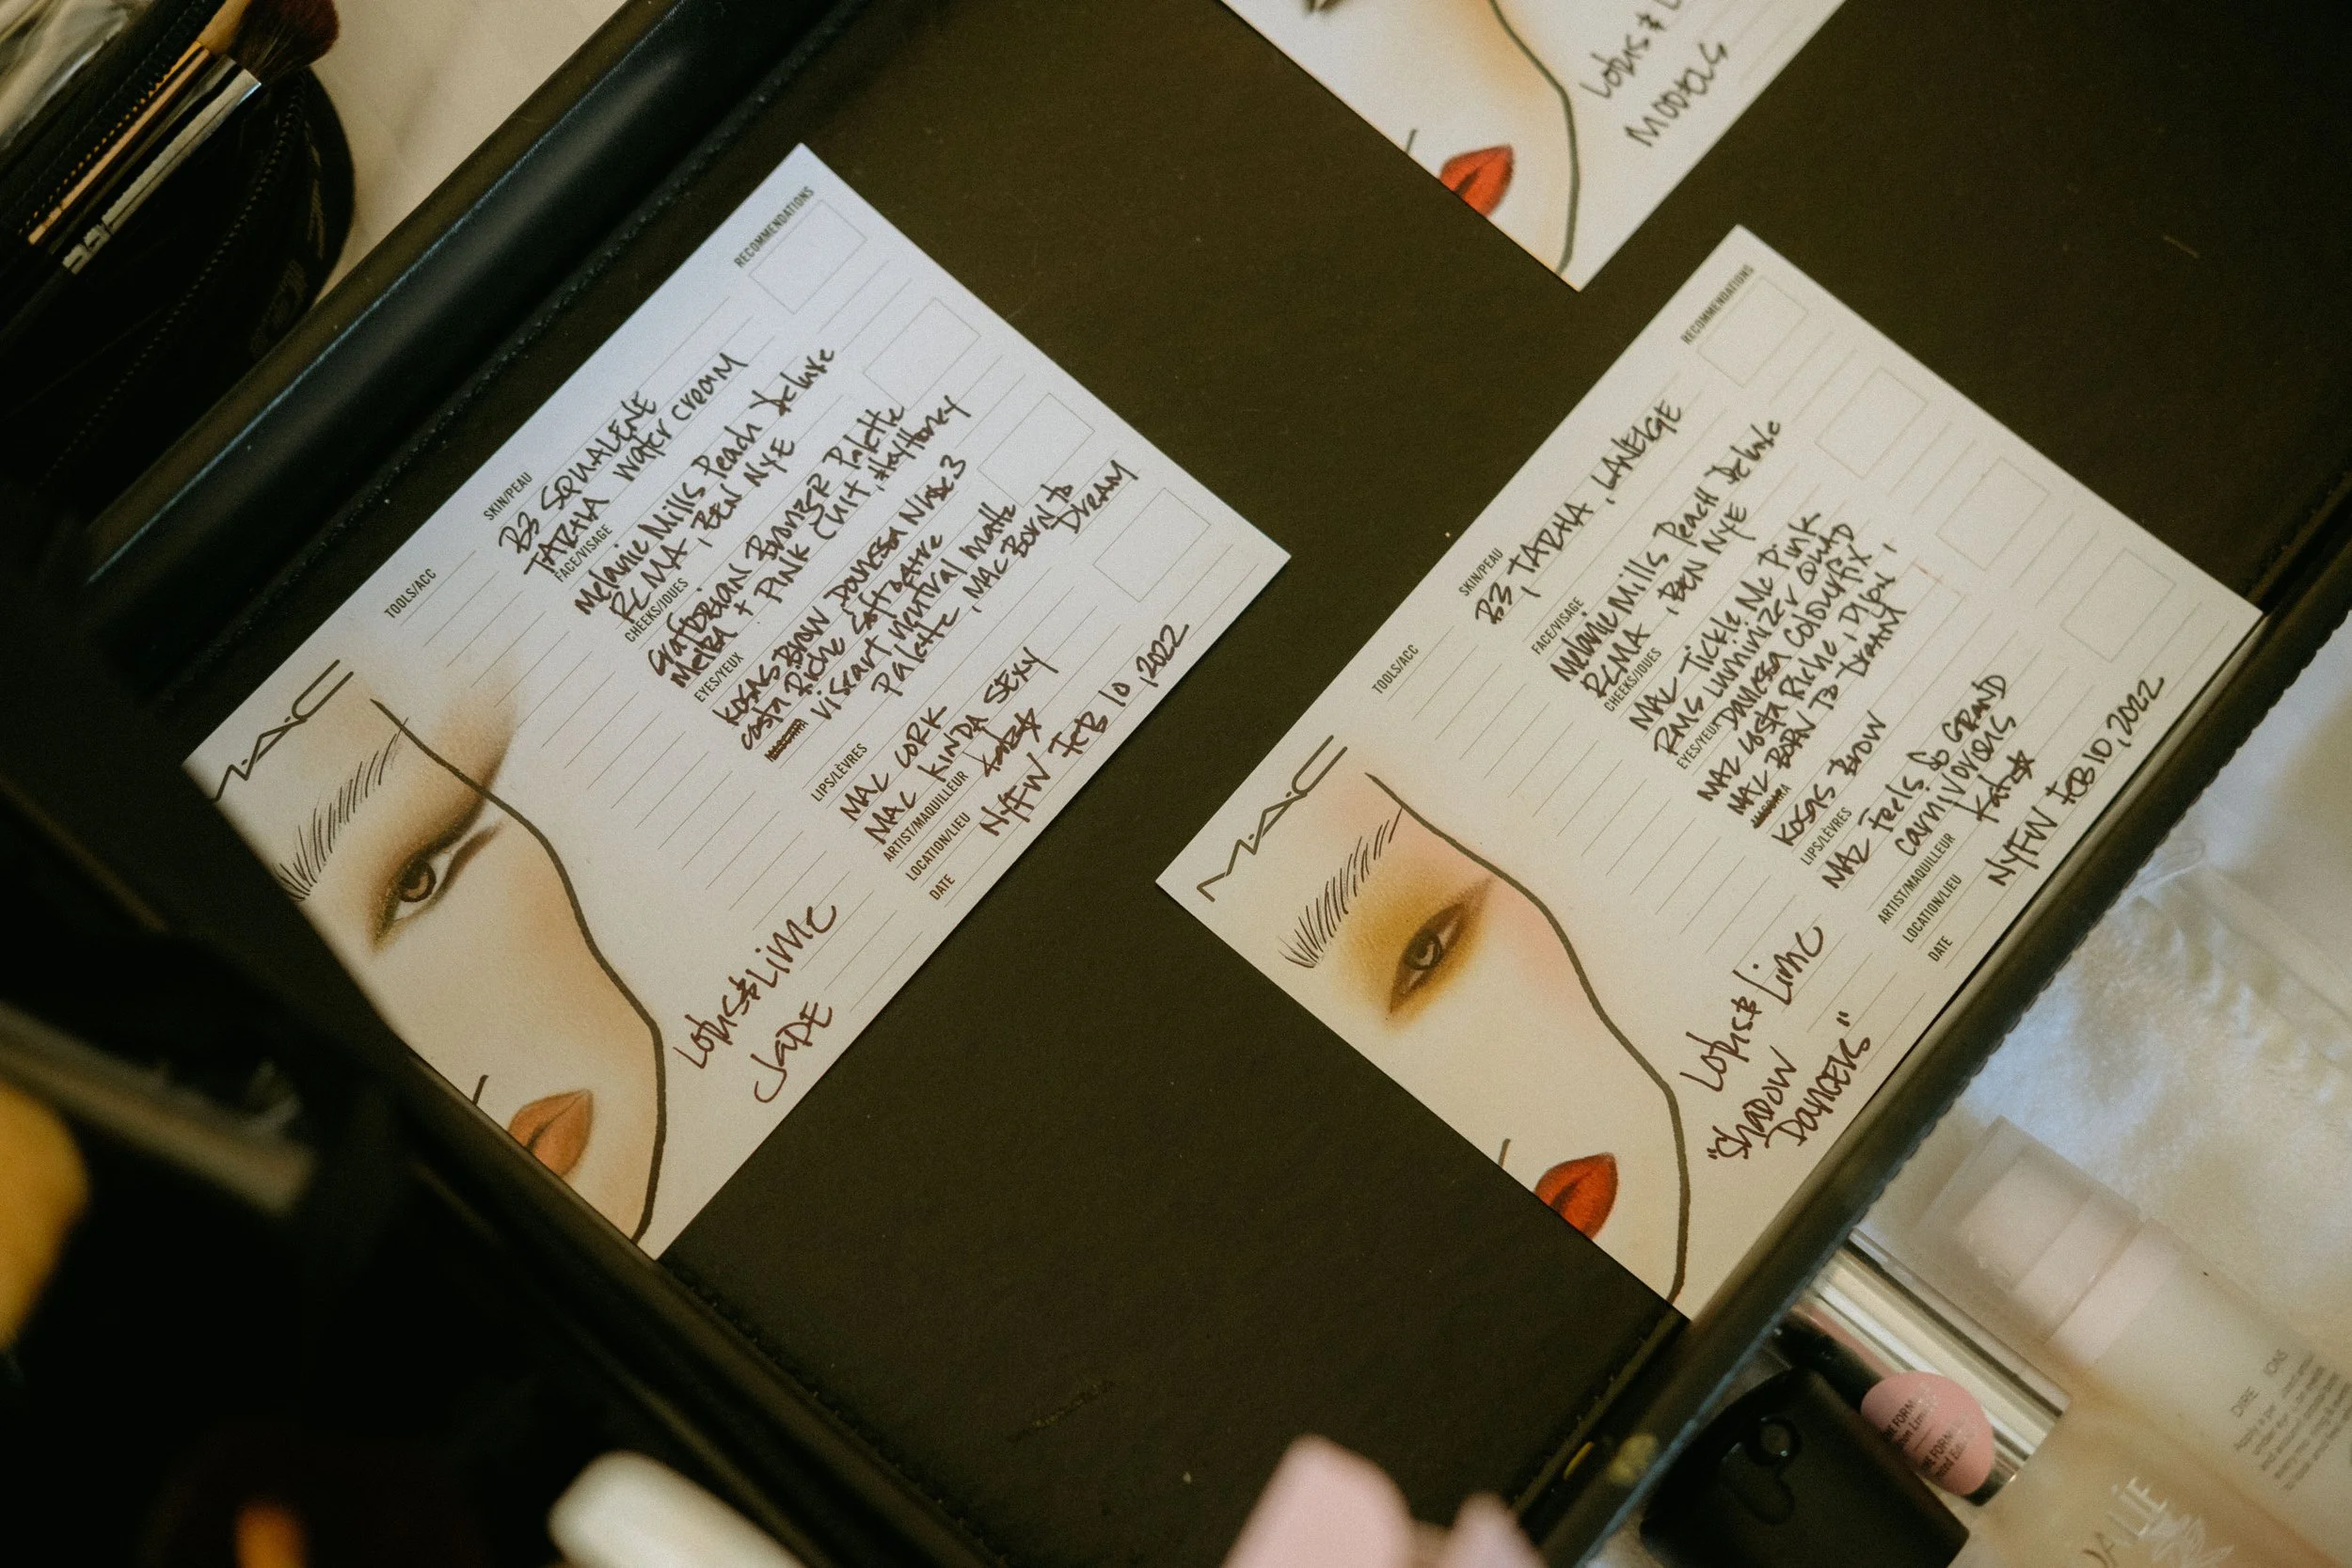 MAC
TOOLS/ACC
SKIN/PEAU
B3 SQUALENE
TARHA water cream
FACE/VISAGE
Melanie Mills Peach Deluxe
RCMA, BEN NYE
CHEEKS/JOUES
Graftobian Bronzer Palette
Melba + PINK Cult, Hey Honey
EYES/YEUX
KOSAS BROW, Danessa Nude 3
costa Riche
viseart neutral matte
palette, MAC BORN to
DREAM
LIPS/LÈVRES
MAC CORK
MAC KINDA SEXY
ARTIST/MAQUILLEUR
LOCATION/LIEU
NYFW FEB 10, 2022
DATE
RECOMMENDATIONS
Lotus & Lime
JADE
MAC
TOOLS/ACC
SKIN/PEAU
B3, TARHA, LANEIGE
FACE/VISAGE
Melanie Mills Peach Deluxe
RCMA, BEN NYE
CHEEKS/JOUES
MAC Tickle Me Pink
RMS Luminizer QUAD
EYES/YEUX
Danessa Colourfix,
MAC Costa Riche, Dijon,
MAC BORN TO DREAM
KOSAS BROW
LIPS/LÈVRES
MAC Feels So GRAND
carnivorous
ARTIST/MAQUILLEUR
LOCATION/LIEU
NYFW FEB 10, 2022
DATE
RECOMMENDATIONS
Lotus & Lime
"SHADOW
Dancers"
Lotus & L
MODELS